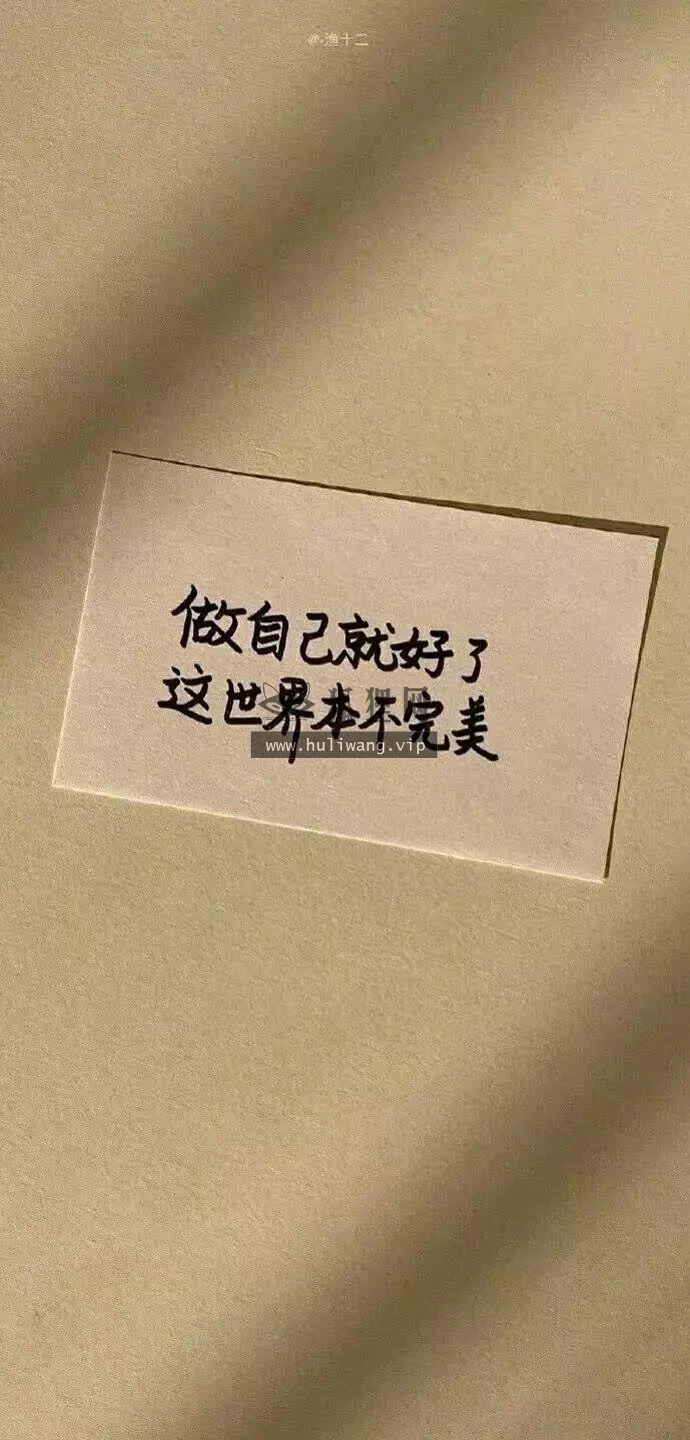 @-渔十二
做自己就好了
这世界本不完美
狐狸网
www.huliwang.vip